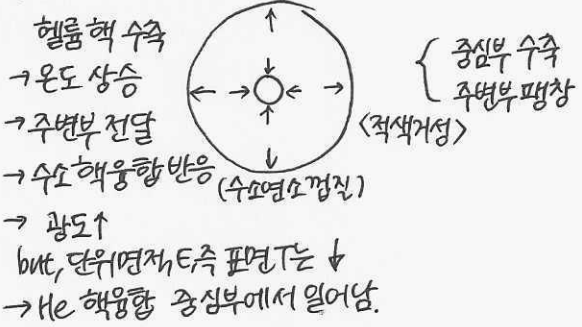 헬륨핵 수축
→ 온도 상승
→ 주변부 전달
→ 수소핵융합 반응 (수소연소껍질)
→ 광도↑
but, 단위면적, E, 즉 표면T는 ↓
→ He 핵융합 중심부에서 일어남.
{ 중심부 수축
주변부 팽창
<적색거성>